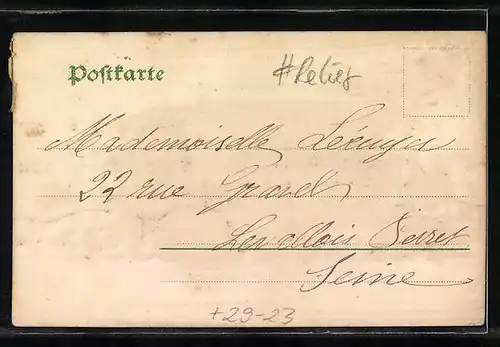 Postkarte
#Relief
Mademoiselle Lécuyer
22 rue Gravel
Levallois Perret
Seine
+29-23